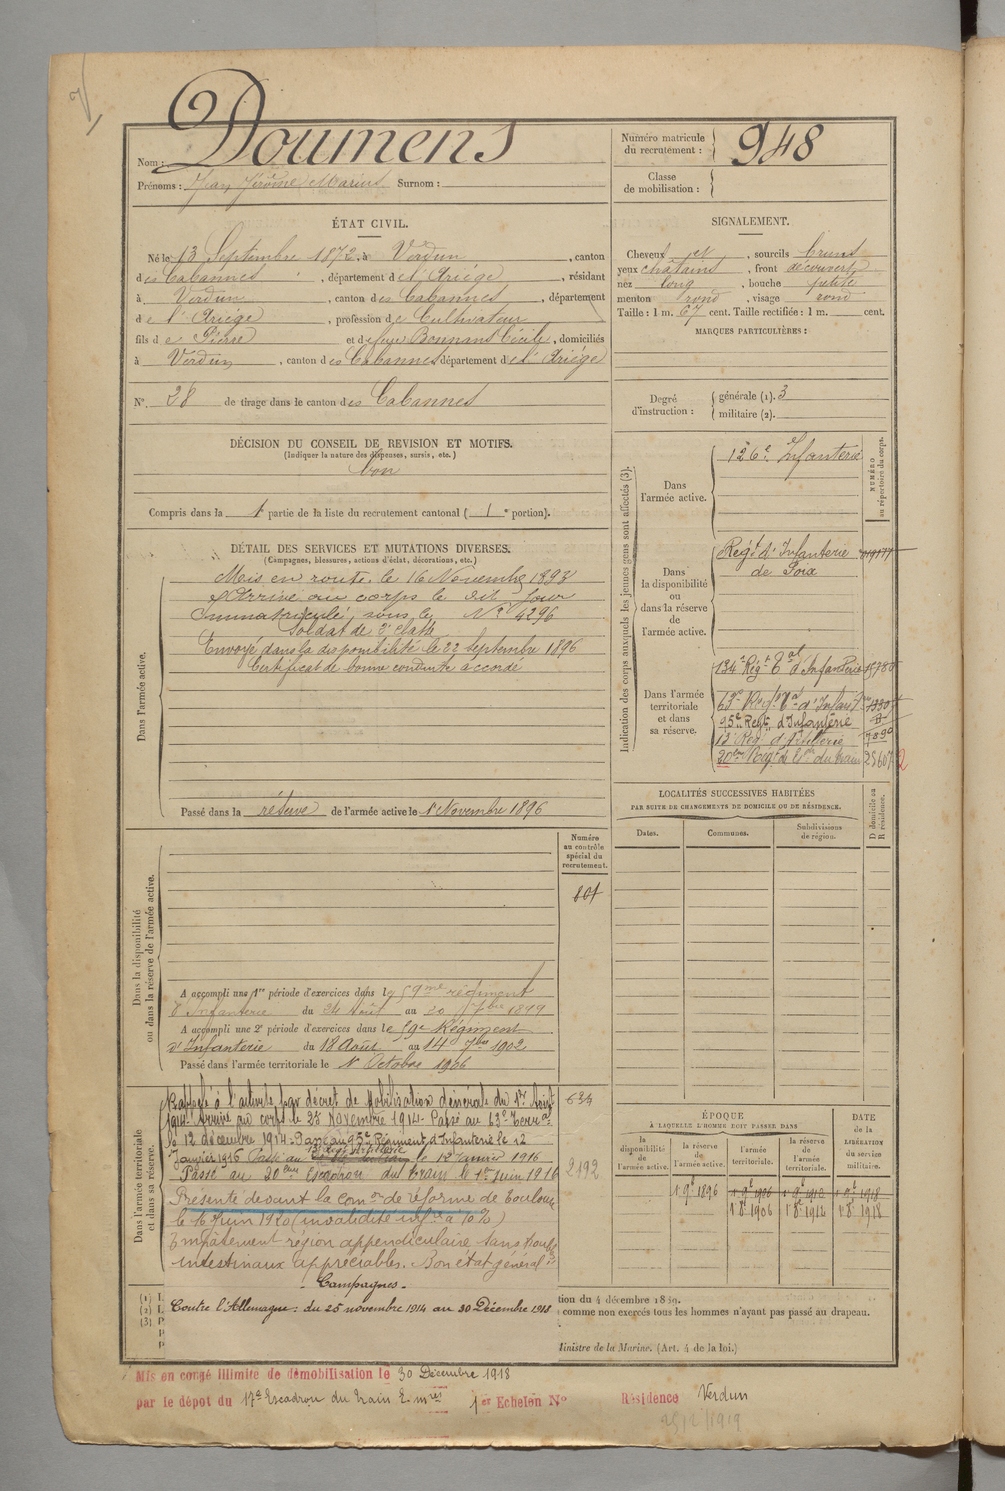 Nom : Doumens
Prénoms : Jean Jérôme Marius Surnom :
Numéro matricule du recrutement : 948
Classe de mobilisation :
ÉTAT CIVIL.
Né le 13 Septembre 1872, à Verdun, canton
des Cabannes, département de l'Ariège, résidant
à Verdun, canton des Cabannes, département
de l'Ariège, profession de Cultivateur
fils de Pierre et de feue Bonnans Cécile, domiciliés
à Verdun, canton des Cabannes département de l'Ariège
N° 28 de tirage dans le canton des Cabannes
SIGNALEMENT.
Cheveux et, sourcils bruns
yeux châtains, front découvert
nez long, bouche petite
menton rond, visage rond
Taille : 1 m. 67 cent. Taille rectifiée : 1 m. cent.
MARQUES PARTICULIÈRES :
Degré d'instruction : générale (1). 3
militaire (2).
DÉCISION DU CONSEIL DE REVISION ET MOTIFS.
(Indiquer la nature des dispenses, sursis, etc.)
bon
Compris dans la 1 partie de la liste du recrutement cantonal (1e portion).
DÉTAIL DES SERVICES ET MUTATIONS DIVERSES.
(Campagnes, blessures, actions d'éclat, décorations, etc.)
Dans l'armée active.
Mis en route le 16 Novembre 1893
Arrivé au corps le dit jour
Immatriculé sous le N° 4296
Soldat de 2e classe
Envoyé dans la disponibilité le 22 septembre 1896
Certificat de bonne conduite accordé
Passé dans la réserve de l'armée active le 1 Novembre 1896
Indication des corps auxquels les jeunes gens sont affectés (3).
NUMÉRO au répertoire du corps.
Dans l'armée active.
126e Infanterie
Dans la disponibilité ou dans la réserve de l'armée active.
Regt d'Infanterie
de Foix
Dans l'armée territoriale et dans sa réserve.
134e Régt Tal d'Infanterie
63e Regt Tal d'Infant
95e Regt d'Infanterie
13 Reg d'Artillerie
20eme Regt de du train 25607
LOCALITÉS SUCCESSIVES HABITÉES
PAR SUITE DE CHANGEMENTS DE DOMICILE OU DE RÉSIDENCE.
Dates. Communes. Subdivisions de région. D domicile ou R résidence.
Numéro au contrôle spécial du recrutement.
601
Dans la disponibilité ou dans la réserve de l'armée active.
A accompli une 1re période d'exercices dans le 59me régiment
d'Infanterie du 24 Août au 20 7bre 1899
A accompli une 2e période d'exercices dans le 59e Régiment
d'Infanterie du 18 Août au 14 7bre 1902
Passé dans l'armée territoriale le 1 Octobre 1906
Dans l'armée territoriale et dans sa réserve.
Rappelé à l'activité par décret de Mobilisation Générale du 1er Août
1914. Arrivé au corps le 25 Novembre 1914. Passé au 63e Terral
le 12 décembre 1914. Passé au 95e Régiment d'Infanterie le 12
Janvier 1916 Passé au 13 Regt d'Artillerie le 12 Janvier 1916
Passé au 20eme Escadron du train le 1er Juin 1916
Présenté devant la Comon de réforme de Toulouse
le 16 Juin 1920 (invalidité infre à 10%)
Empâtement région appendiculaire sans troubles
intestinaux appréciables. Bon état général
634
2192
- Campagnes -
Contre l'Allemagne : du 25 novembre 1914 au 30 Décembre 1918
ÉPOQUE
A LAQUELLE L'HOMME DOIT PASSER DANS
la disponibilité de l'armée active. la réserve de l'armée active. l'armée territoriale. la réserve de l'armée territoriale. DATE de la LIBÉRATION du service militaire.
1 9e 1896 1 9e 1906 1 9e 1912 1 9e 1918
1 8e 1906 1 8e 1912 1 8e 1918
(1) L
(2) L
(3) P
tion du 4 décembre 1889.
comme non exercés tous les hommes n'ayant pas passé au drapeau.
Ministre de la Marine. (Art. 4 de la loi.)
Mis en congé illimité de démobilisation le 30 Décembre 1918
par le dépot du 17e Escadron du train E. mres 1er Echelon N°
Résidence Verdun